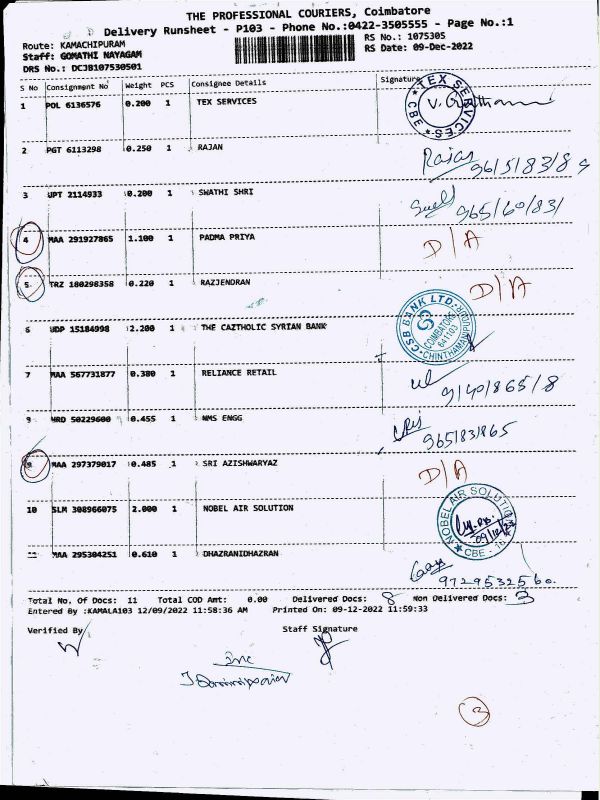 THE PROFESSIONAL COURIERS, Coimbatore
Delivery Runsheet - P103 - Phone No.:0422-3505555 - Page No.:1
Route: KAMACHIPURAM RS No.: 1075305
Staff: GOMATHI NAYAGAM RS Date: 09-Dec-2022
DRS No.: DCJB107530501
S No Consignment No Weight PCS Consignee Details Signature
1 POL 6136576 0.200 1 TEX SERVICES
TEX SERVICES CBE
2 PGT 6113298 0.250 1 RAJAN
Rajan
3 UPT 2114933 0.200 1 SWATHI SHRI
965/60/83/
4 MAA 291927865 1.100 1 PADMA PRIYA D/A
5 TRZ 180298358 0.220 1 RAZJENDRAN D/A
6 UDP 15184998 2.200 1 THE CAZTHOLIC SYRIAN BANK
CSB BANK LTD. COIMBATORE 641103
7 MAA 567731877 0.380 1 RELIANCE RETAIL
9140/865/8
9 WRD 50229600 0.455 1 WMS ENGG
9651831865
MAA 297379017 0.485 1 SRI AZISHWARYAZ D/A
10 SLM 308966075 2.000 1 NOBEL AIR SOLUTION
NOBEL AIR SOLUTION CBE
11 MAA 295304251 0.610 1 DHAZRANIDHAZRAN
9729532560.
Total No. Of Docs: 11 Total COD Amt: 0.00 Delivered Docs: 8 Non Delivered Docs: 3
Entered By :KAMALA103 12/09/2022 11:58:36 AM Printed On: 09-12-2022 11:59:33
Verified By Staff Signature
3